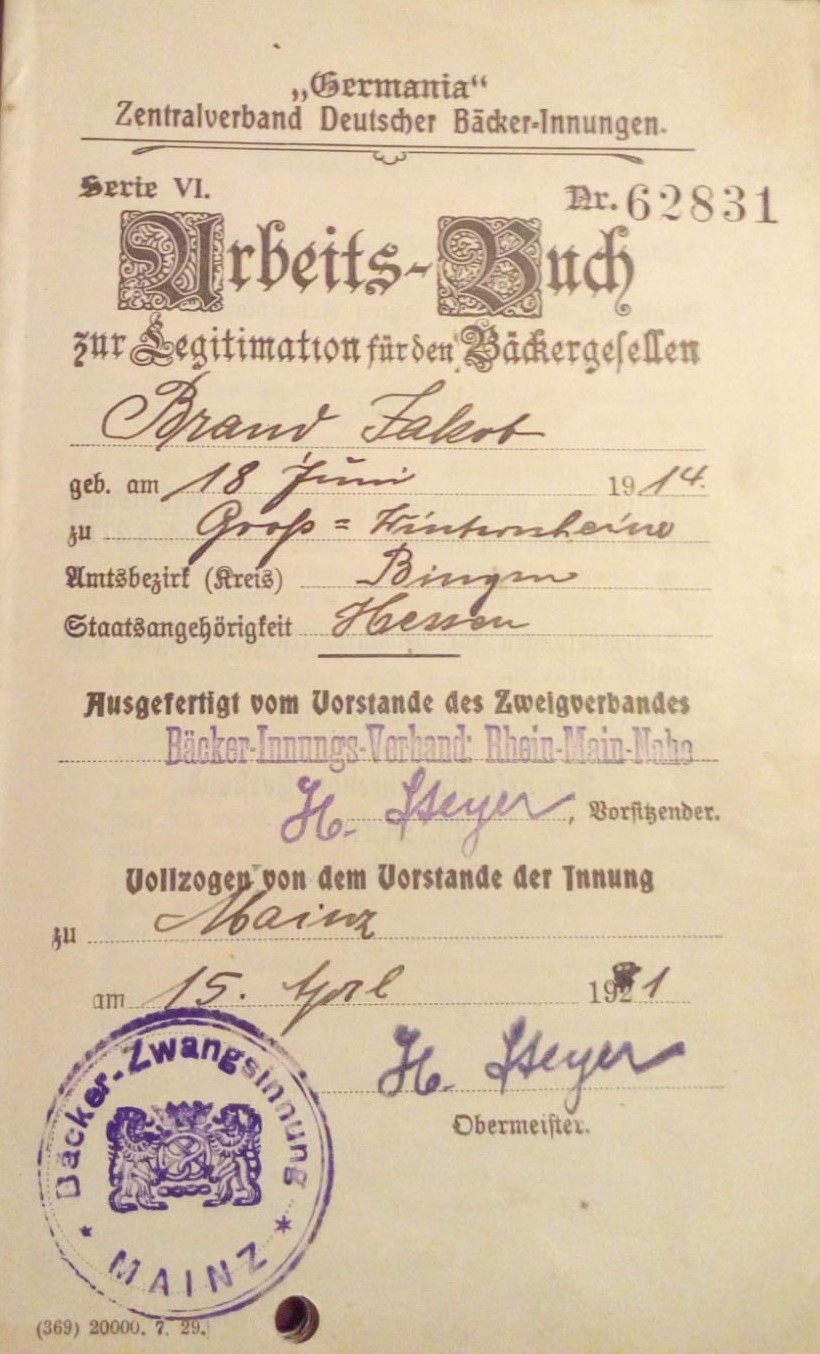 „Germania“
Zentralverband Deutscher Bäcker-Innungen.
Serie VI.
Nr. 62831
Arbeits-Buch
zur Legitimation für den Bäckergesellen
Brand Jakob
geb. am 18 Juni 1914.
zu Groß=Winternheim
Amtsbezirk (Kreis) Bingen
Staatsangehörigkeit Hessen
Ausgefertigt vom Vorstande des Zweigverbandes
Bäcker-Innungs-Verband: Rhein-Main-Nahe
H. Steyer, Vorsitzender.
Vollzogen von dem Vorstande der Innung
zu Mainz
am 15. April 1931
H. Steyer
Obermeister.
Bäcker-Zwangsinnung
MAINZ
(369) 20000. 7. 29.